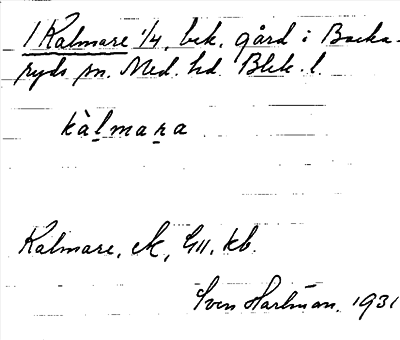 1 Kalmare 1/4, bek. gård i Backa-
ryds sn. Med. hd. Blek. l.
kàlmara
Kalmare, ek, GII. kb.
Sven Hartman. 1931